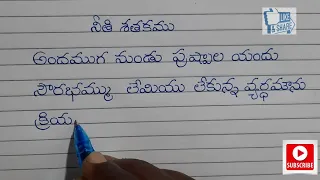 నీతి శతకము
అందముగ నుండు పుష్పాల యందు
సౌరభమ్ము లేమియు లేకున్న వ్యర్థమౌను
క్రియ
LIKE
& SHARE
SUBSCRIBE